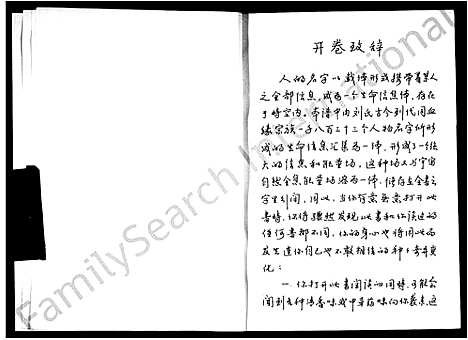 开卷致辞
人的名字以载体形式携带着某人
之全部信息，成为一个生命信息体，存在
于时空内。本谱中内刘氏古今列代同血
缘宗族一千八百三十三个人物名字所形
成的生命信息汇集为一体，形成了一组
大的信息和能量场。这种场又与宇宙
自然全息能量场溶为一体，储存至全书之
字里行间，因此，当你有意无意打开此
书时，你将骤然发现此书和你读过的
任何书都不同，你的身心也将因此而
发生连你自己也不敢相信的种种奇异变
化：
一、你打开此书阅读的同时，可能会
闻到各种清香味或中草药味向你袭来，这
FamilySearch International